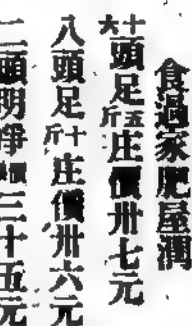 食過家肥屋潤
十六頭足五斤庄價卅七元
八頭足十斤庄價卅六元
二頭明淨價三十五元